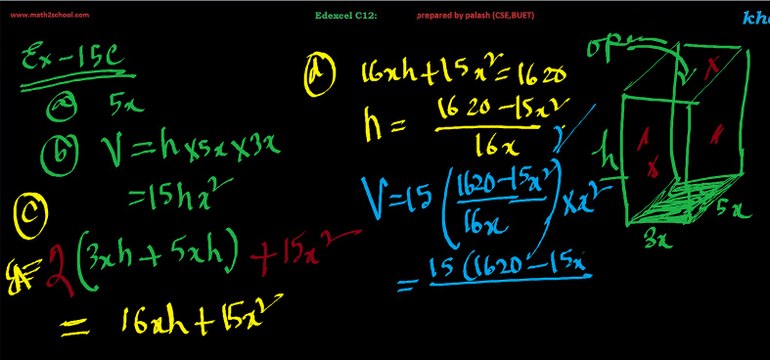 www.math2school.com
Edexcel C12:
prepared by palash (CSE,BUET)
Ex-15C
(a) 5x
(b) V = h×5x×3x
= 15hx²
(c)
SA = 2(3xh + 5xh) + 15x²
= 16xh + 15x²
(d) 16xh + 15x² = 1620
h = (1620 - 15x²)/16x
V = 15((1620 - 15x²)/16x) × x²
= 15(1620 - 15x
open
h
3x
5x